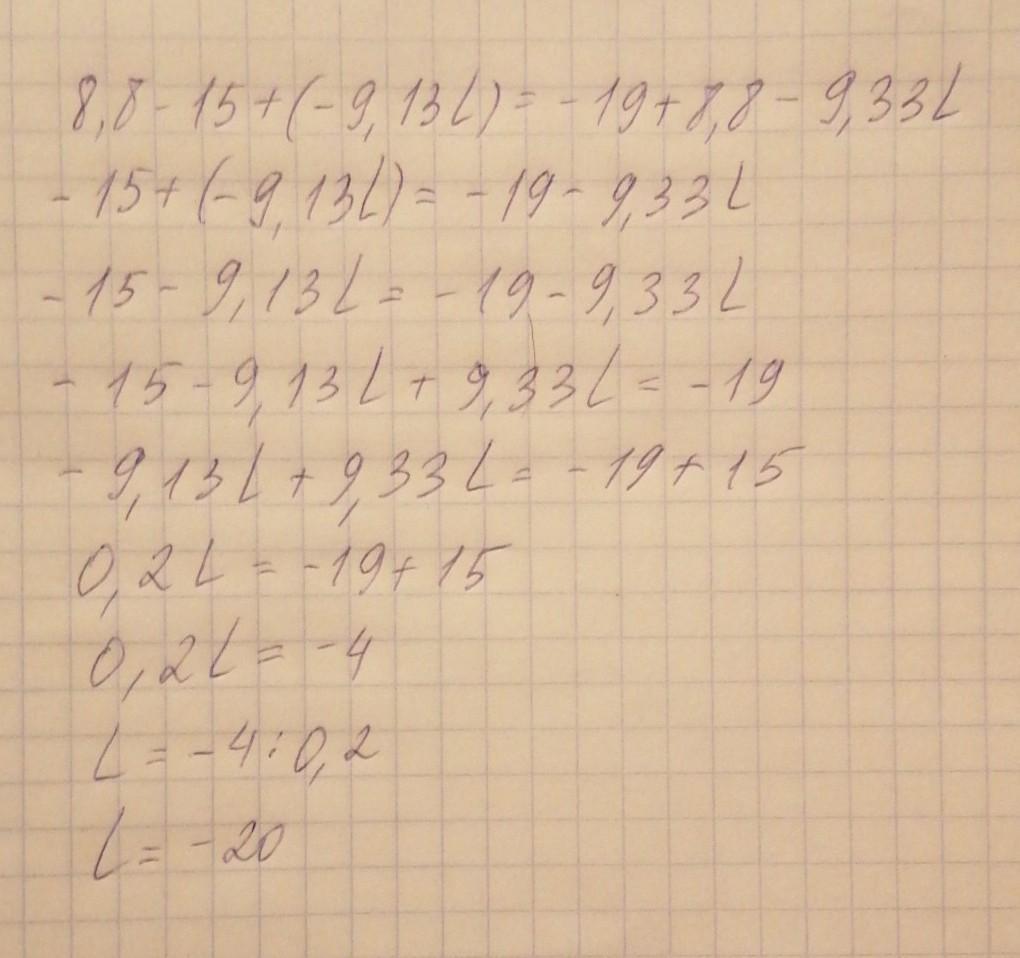 8,8-15+(-9,13L)=-19+8,8-9,33L
-15+(-9,13L)=-19-9,33L
-15-9,13L=-19-9,33L
-15-9,13L+9,33L=-19
-9,13L+9,33L=-19+15
0,2L=-19+15
0,2L=-4
L=-4:0,2
L=-20